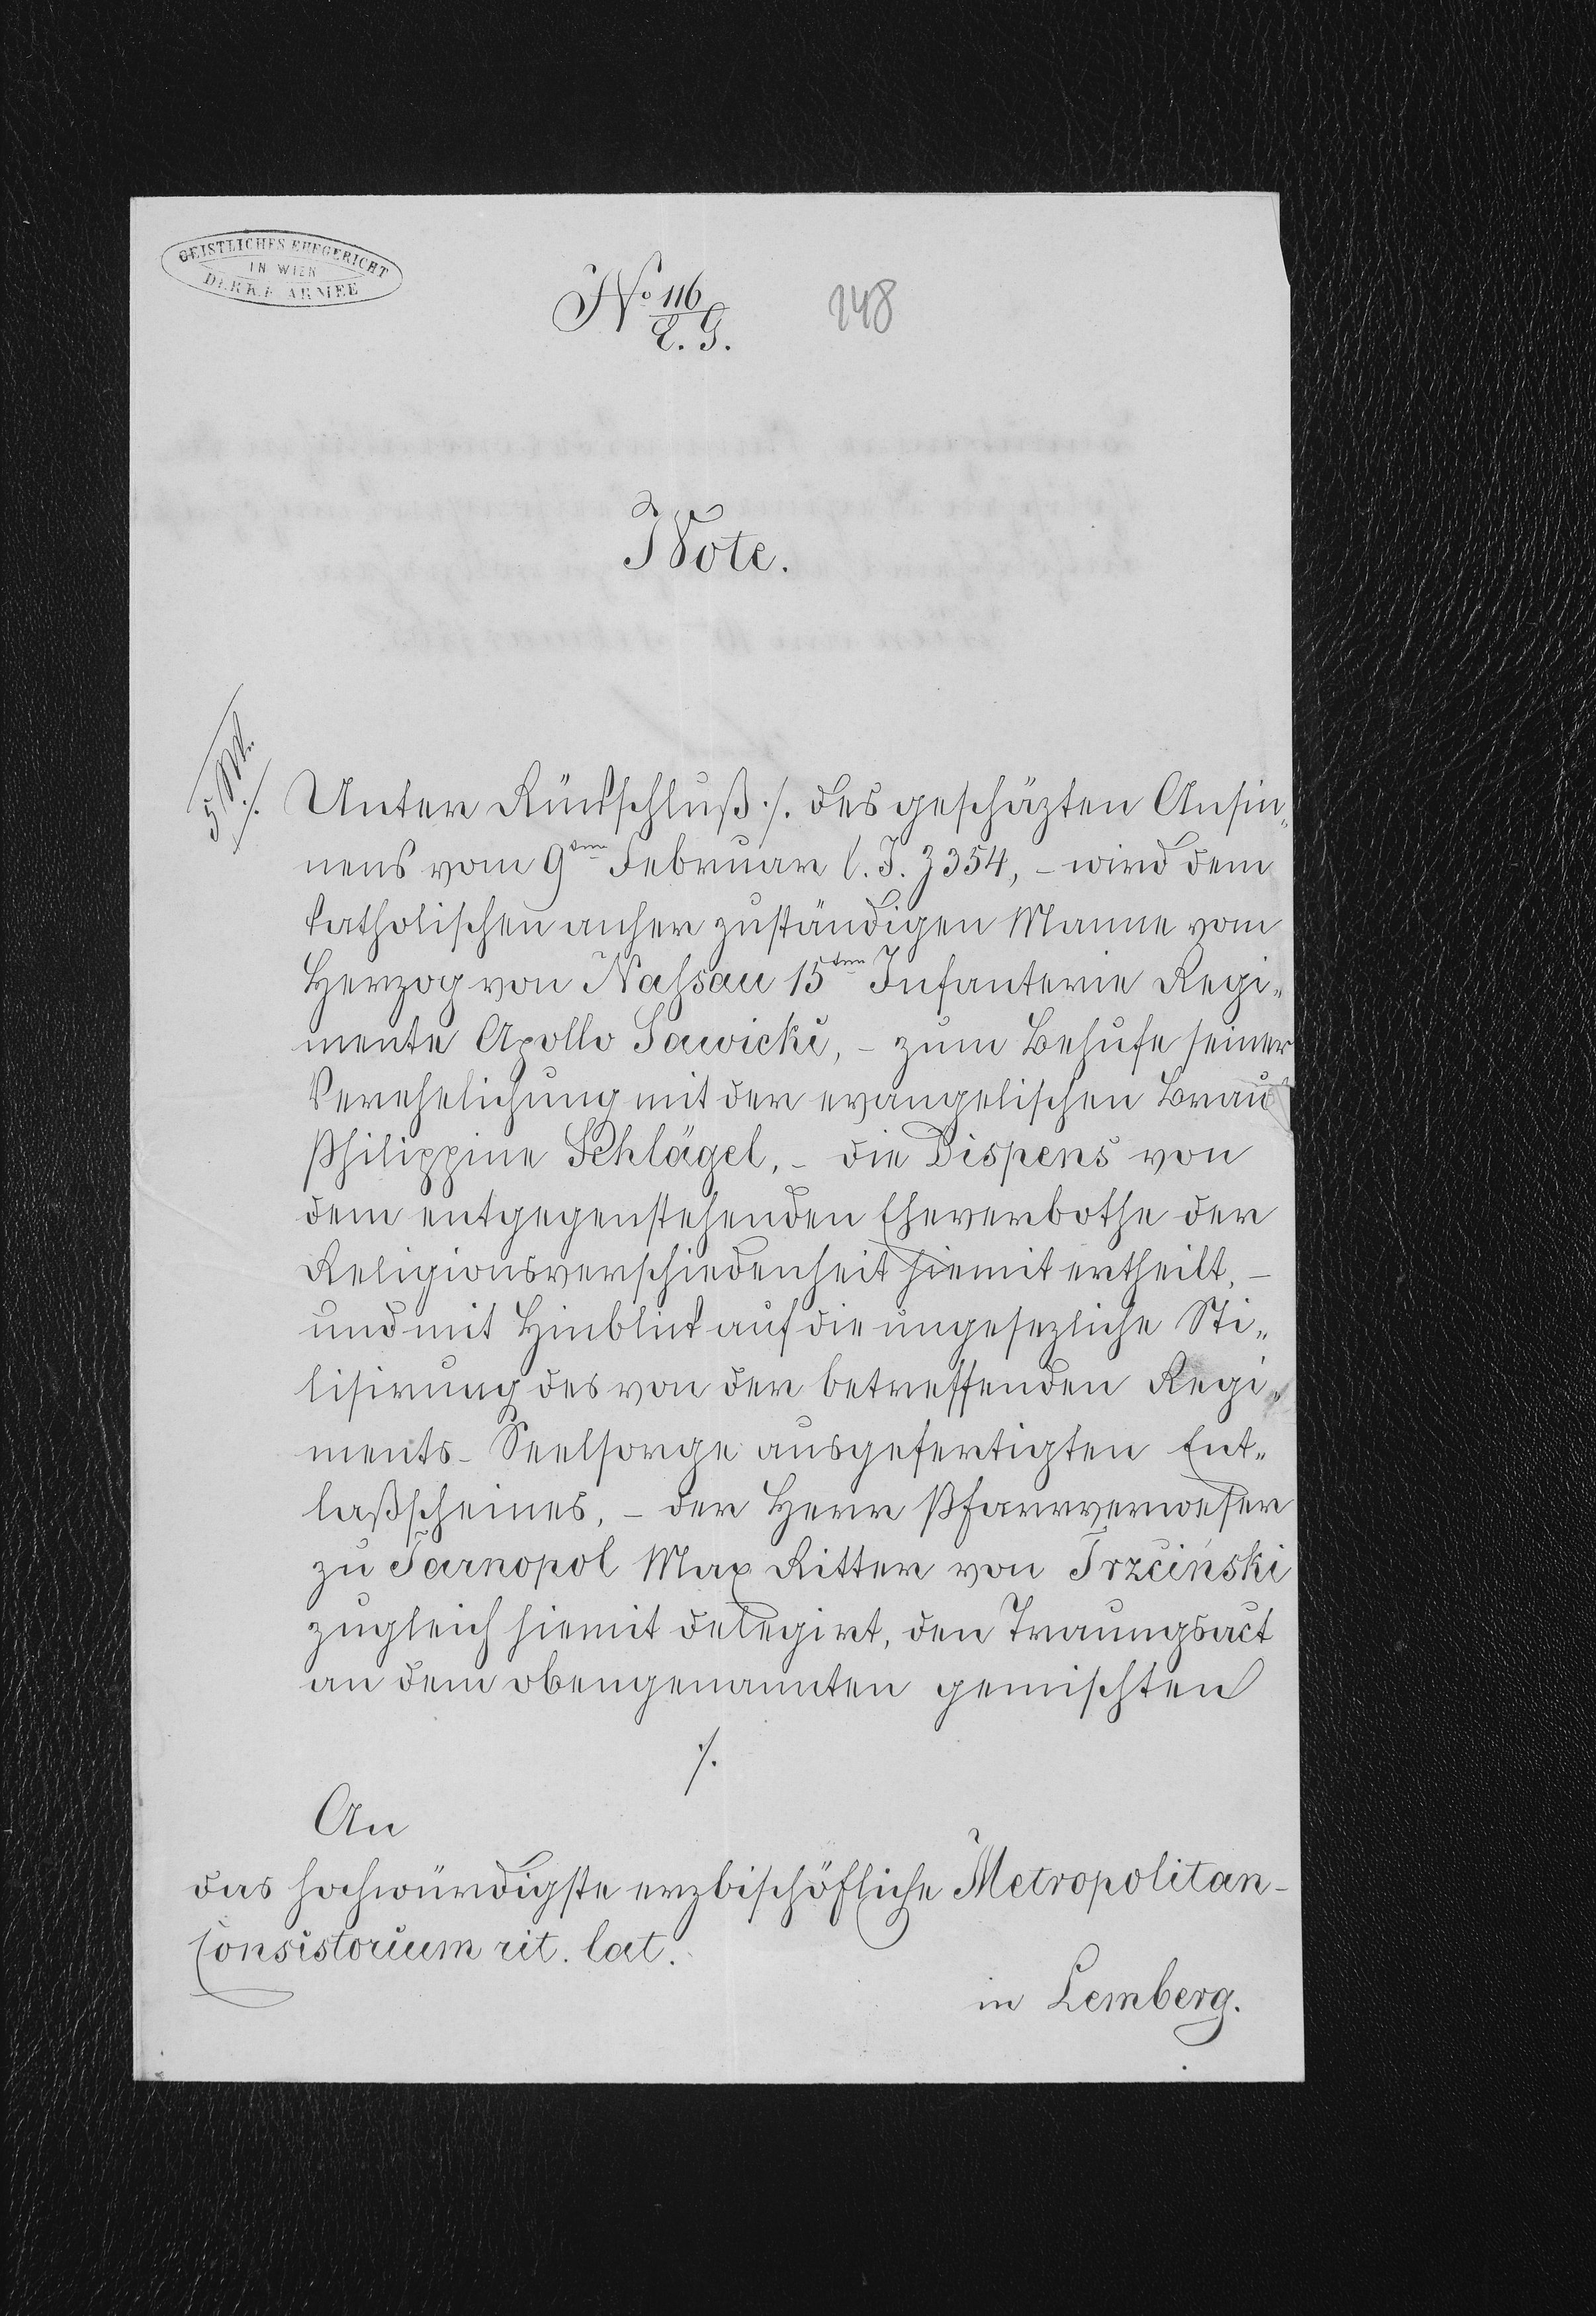 GEISTLICHES EHEGERICHT
IN WIEN
DER K.K. ARMEE
No 116/E.G.
248
Note.
5 Bl.
./.
Unter Rückschluß ./. des geschäzten Ansin„
nens vom 9ten Februar l. J. Z 354, – wird dem
katholischen anher zuständigen Manne vom
Herzog von Nassau 15ten Infanterie Regi„
mente Apollo Sawicki, – zum Behufe seiner
Verehelichung mit der evangelischen Braut
Philippine Schlägel, – die Dispens von
dem entgegenstehenden Eheverbothe der
Religionsverschiedenheit hiemit ertheilt, –
und mit Hinblick auf die ungesezliche Sti„
lisirung des von der betreffenden Regi„
ments- Seelsorge ausgefertigten Ent„
laßscheines, – der Herr Pfarrverweser
zu Tarnopol Max Ritter von Trzciński
zugleich hiemit delegirt, den Trauungsact
an dem obengenannten gemischten
./.
An
das hochwürdigste erzbischöfliche Metropolitan-
Consistorium rit. lat.
in Lemberg.